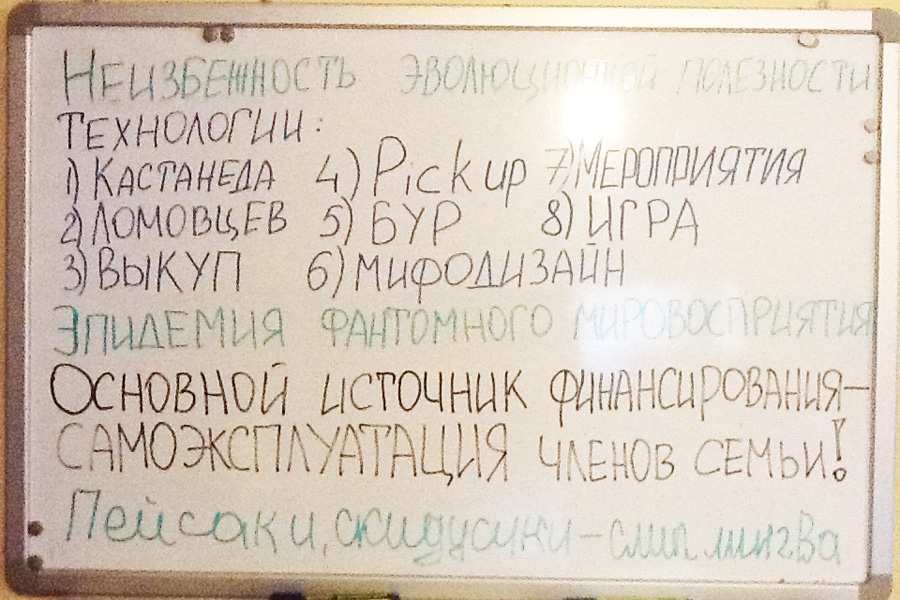 Неизбежность эволюционной полезности
Технологии:
1) Кастанеда 4) Pick up 7) Мероприятия
2) Ломовцев 5) БУР 8) ИГРА
3) ВЫКУП 6) Мифодизайн
Эпидемия фантомного мировосприятия
Основной источник финансирования —
самоэксплуатация членов семьи!
Пейсаки, скидусики — слип лингва